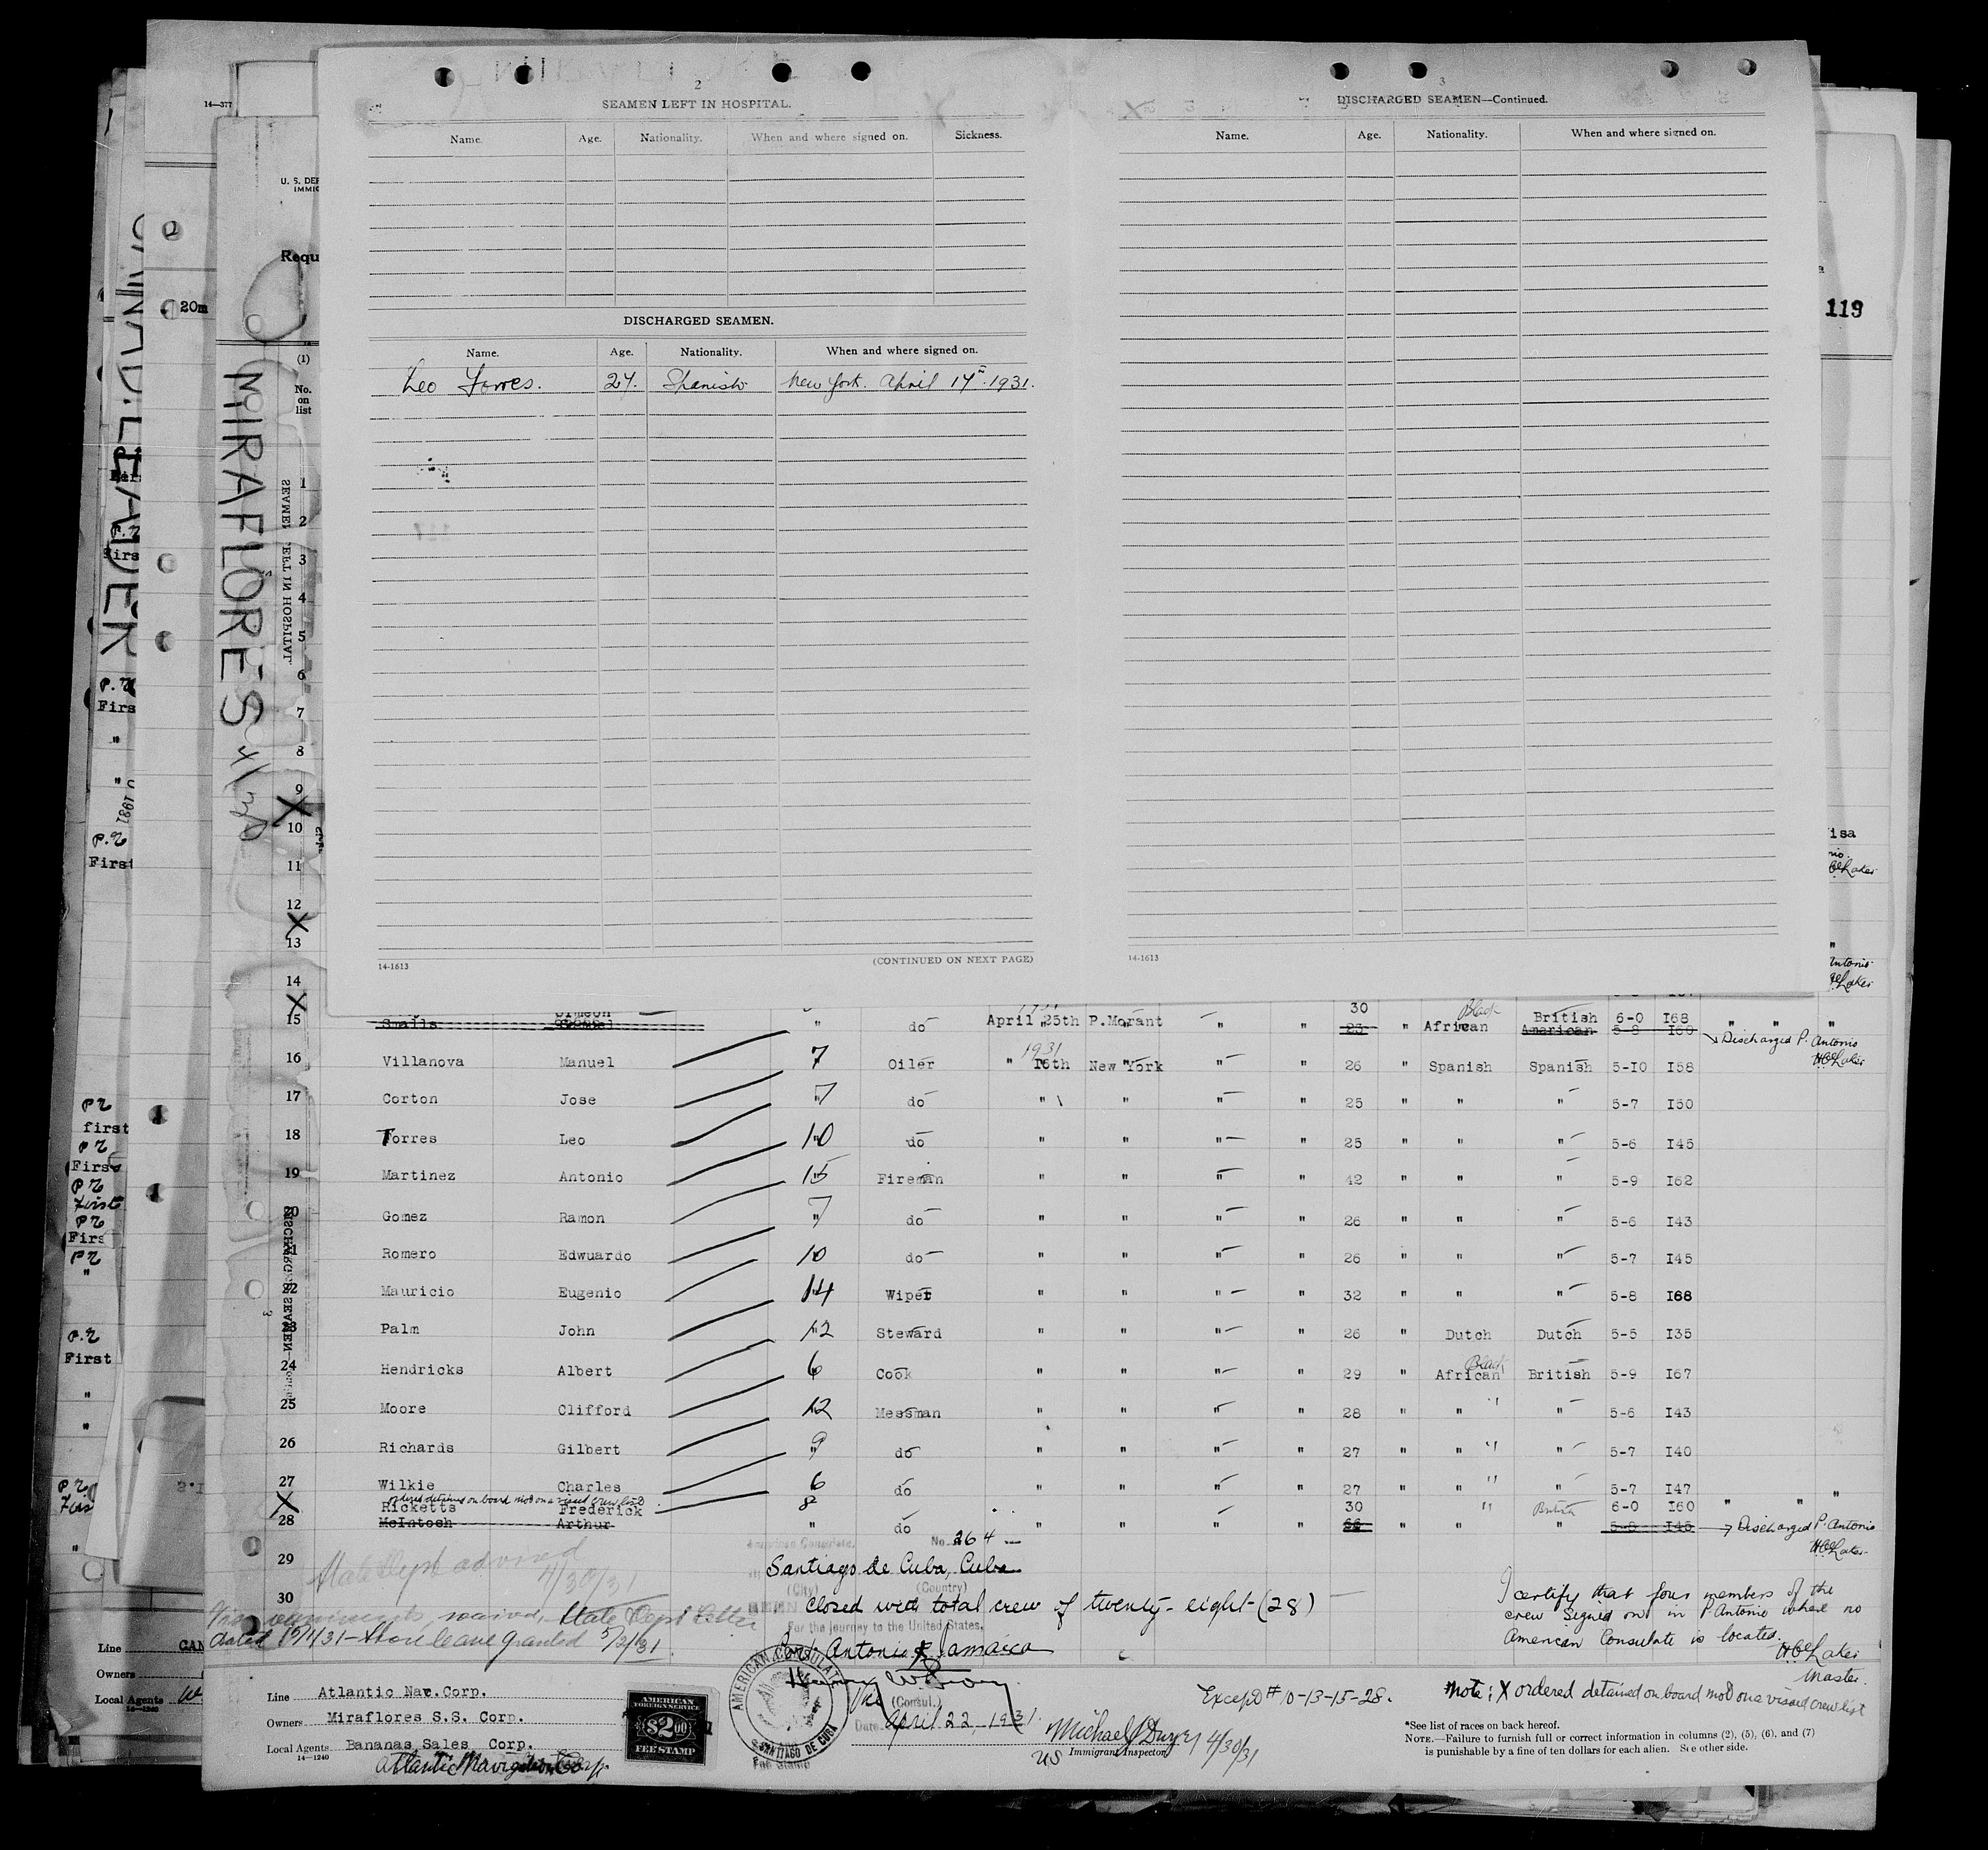 14—377
2
SEAMEN LEFT IN HOSPITAL.
Name. Age. Nationality. When and where signed on. Sickness.
DISCHARGED SEAMEN.
Name. Age. Nationality. When and where signed on.
Leo Torres. 27. Spanish New York. April 17th. 1931.
14-1613 (CONTINUED ON NEXT PAGE)
3
DISCHARGED SEAMEN—Continued.
Name. Age. Nationality. When and where signed on.
14-1613
U. S. DEP
IMMIG
Requ
20m
119
(1)
No.
on
list
MIRAFLORES
SEAMEN LEFT IN HOSPITAL.
1
2
3
4
5
6
7
8
9
X
10
11
12
X
13
14
X
30 Black British 6-0 I68
15 Smalls " do April 25th P.Morant " " 23 " African American 5-8 I60 " " "
Discharged P. Antonio
HCLaker
1931
16 Villanova Manuel 7 Oiler " 16th New York " " 26 " Spanish Spanish 5-10 I58
17 Corton Jose 7 do " " " " 25 " " " 5-7 I50
18 Torres Leo 10 do " " " " 25 " " " 5-6 I45
19 Martinez Antonio 15 Fireman " " " " 42 " " " 5-9 I62
20 Gomez Ramon 7 do " " " " 26 " " " 5-6 I43
21 Romero Edwuardo 10 do " " " " 26 " " " 5-7 I45
22 Mauricio Eugenio 14 Wiper " " " " 32 " " " 5-8 I68
23 Palm John 12 Steward " " " " 26 " Dutch Dutch 5-5 I35
Black
24 Hendricks Albert 6 Cook " " " " 29 " African British 5-9 I67
25 Moore Clifford 12 Messman " " " " 28 " " " 5-6 I43
26 Richards Gilbert 9 do " " " " 27 " " " 5-7 I40
27 Wilkie Charles 6 do " " " " 27 " " " 5-7 I47
ordered detained on board not on a visaed crew list
X Ricketts Frederick 8 30 " British 6-0 I60 " " "
28 McIntosh Arthur " do " " " " 66 " " " 5-8 I45 Discharged P. Antonio
HCLaker
29 State Dept advised
4/30/31
30
State Dept Letter
dated 5/1/31 — Shore leave granted 5/2/31.
American Consulate. No. 264
Santiago de Cuba, Cuba
(City) (Country)
Closed with total crew of twenty-eight (28)
For the journey to the United States,
Antonio Jamaica
(Consul.)
Date April 22, 1931.
AMERICAN CONSULATE
SANTIAGO DE CUBA
Fee Stamp
I certify that four members of the
crew signed on in P. Antonio where no
American Consulate is located.
HCLaker
Master.
Line Atlantic Nav. Corp.
Owners Miraflores S.S. Corp.
Local Agents Bananas Sales Corp.
14—1240
Atlantic Navigation Corp.
AMERICAN
FOREIGN SERVICE
$2.00
FEE STAMP
Except # 10-13-15-28.
Michael J Dwyer 4/30/31
US Immigrant Inspector
Note: X ordered detained on board not on a visaed crew list
*See list of races on back hereof.
NOTE.—Failure to furnish full or correct information in columns (2), (5), (6), and (7)
is punishable by a fine of ten dollars for each alien. See other side.
P.2
First
"
P.2
First
P2
first
P2
First
P2
First
P2
First
P2
"
P.2
First
"
"
P2
"
Line CAN
Owners
Local Agents
14-1240